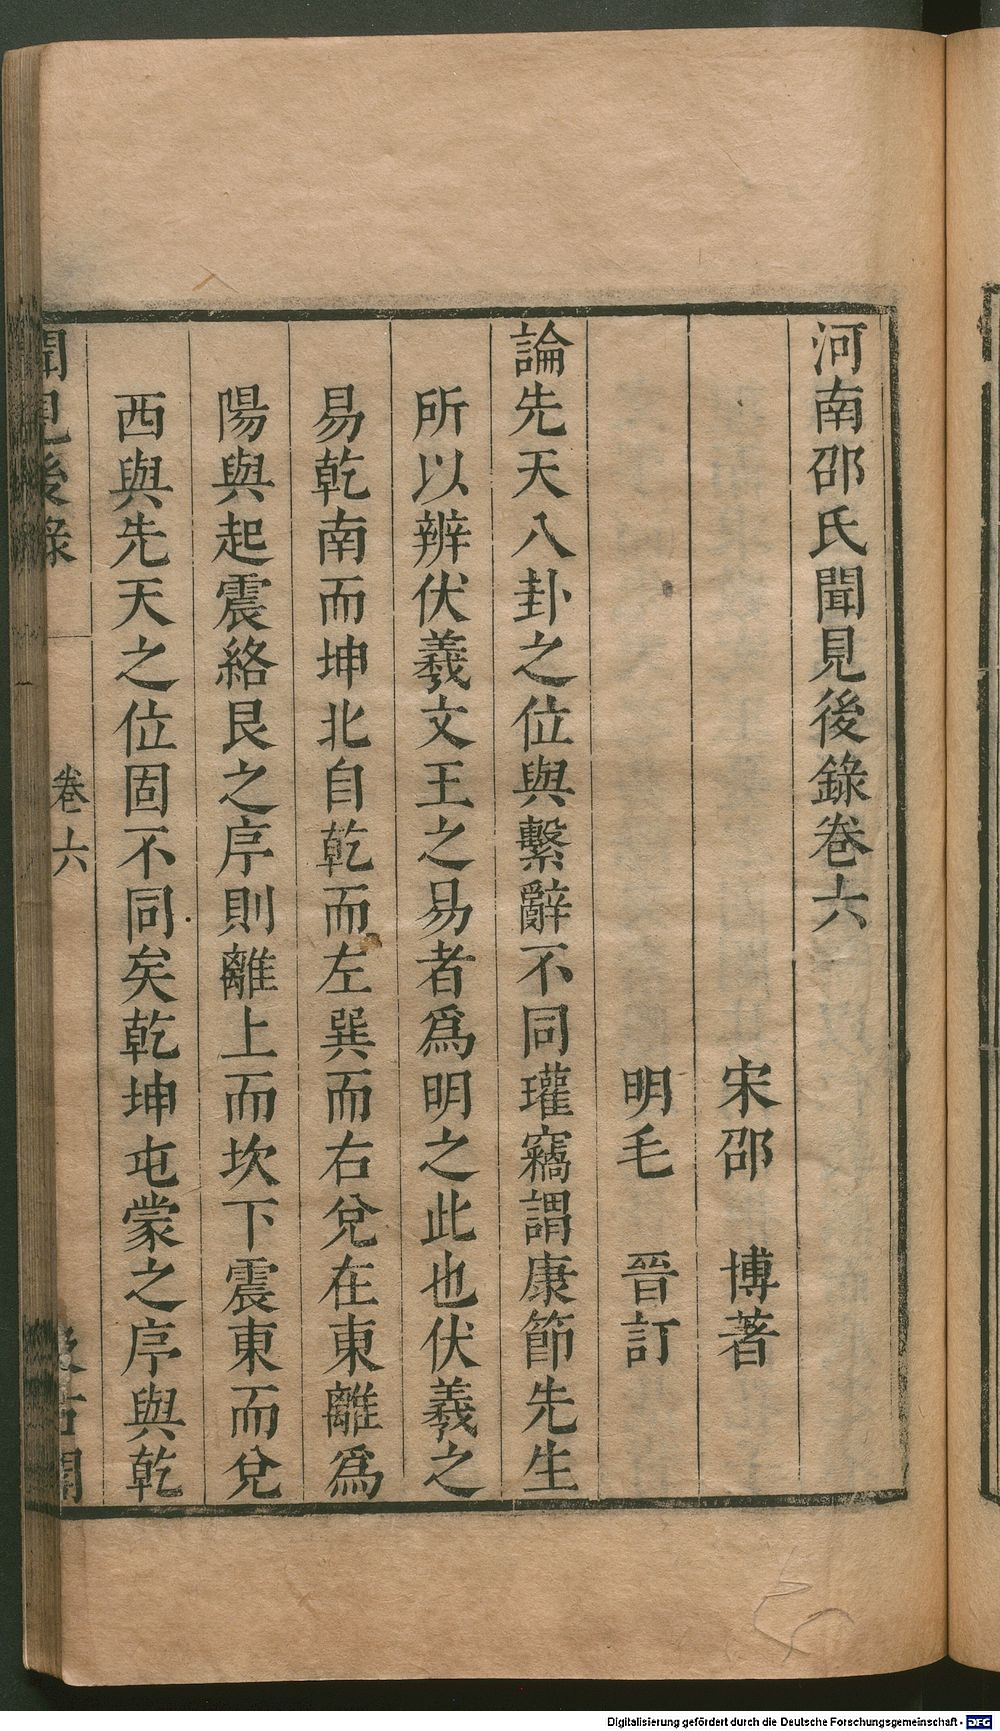 河南邵氏聞見後錄卷六
宋邵　博著
明毛　晉訂
論先天八卦之位與繫辭不同瓘竊謂康節先生
所以辨伏羲文王之易者爲明之此也伏羲之
易乾南而坤北自乾而左巽而右兌在東離爲
陽與起震絡艮之序則離上而坎下震東而兌
西與先天之位固不同矣乾坤屯蒙之序與乾
聞見後錄
卷六
汲古閣
Digitalisierung gefördert durch die Deutsche Forschungsgemeinschaft - DFG